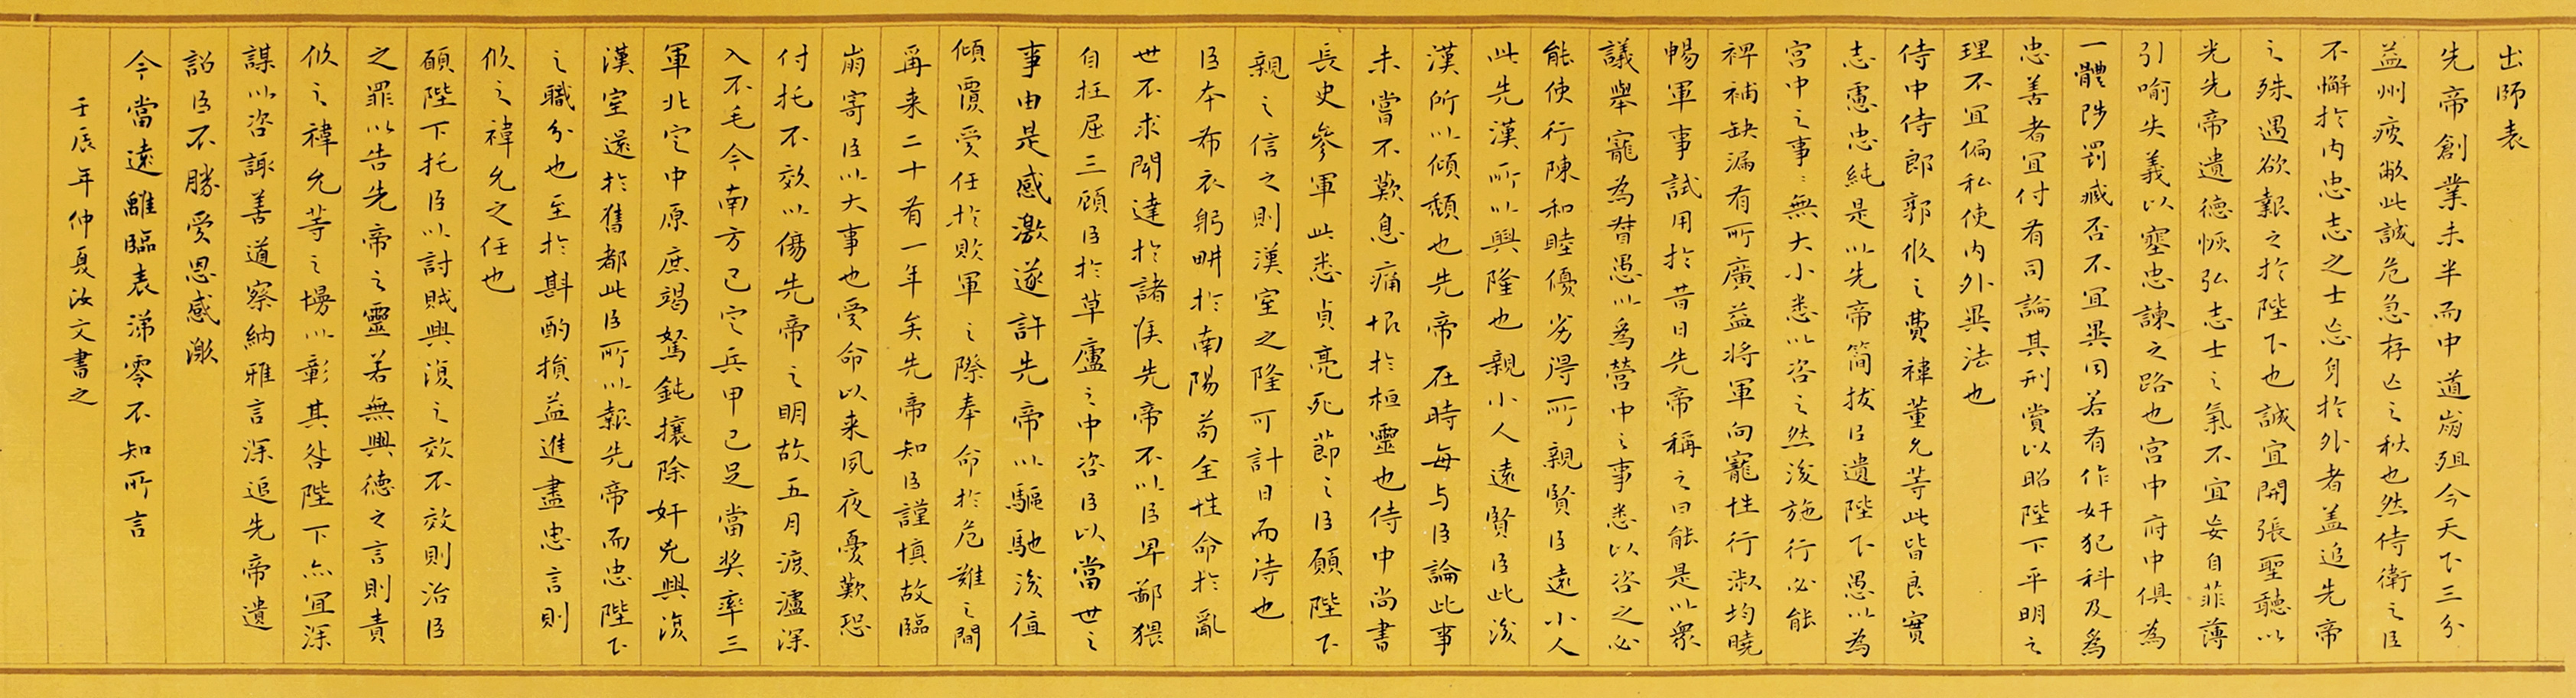 出師表
先帝創業未半而中道崩殂今天下三分
益州疲敝此誠危急存亡之秋也然侍衛之臣
不懈於内忠志之士忘身於外者盖追先帝
之殊遇欲報之於陛下也誠宜開張聖聽以
光先帝遺德恢弘志士之氣不宜妄自菲薄
引喻失義以塞忠諫之路也宮中府中俱為
一體陟罰臧否不宜異同若有作奸犯科及為
忠善者宜付有司論其刑賞以昭陛下平明之
理不宜偏私使内外異法也
侍中侍郎郭攸之費禕董允等此皆良實
志慮忠純是以先帝簡拔以遺陛下愚以為
宮中之事:無大小悉以咨之然後施行必能
裨補缺漏有所廣益將軍向寵性行淑均曉
暢軍事試用於昔日先帝稱之曰能是以衆
議舉寵為督愚以爲營中之事悉以咨之必
能使行陳和睦優劣得所親賢臣遠小人
此先漢所以興隆也親小人遠賢臣此後
漢所以傾頹也先帝在時每与臣論此事
未嘗不歎息痛恨於桓靈也侍中尚書
長史參軍此悉貞亮死節之臣願陛下
親之信之則漢室之隆可計日而待也
臣本布衣躬畊於南陽苟全性命於亂
世不求聞達於諸侯先帝不以臣卑鄙猥
自枉屈三顧臣於草廬之中咨臣以當世之
事由是感激遂許先帝以驅馳後值
傾覆受任於敗軍之際奉命於危難之間
爾来二十有一年矣先帝知臣謹慎故臨
崩寄臣以大事也受命以来夙夜憂歎恐
付托不效以傷先帝之明故五月渡瀘深
入不毛今南方已定兵甲已足當奖率三
軍北定中原庶竭駑鈍攘除奸兇興復
漢室還於舊都此臣所以報先帝而忠陛下
之職分也至於斟酌損益進盡忠言則
攸之禕允之任也
願陛下托臣以討賊興復之效不效則治臣
之罪以告先帝之靈若無興德之言則責
攸之禕允等之慢以彰其咎陛下亦宜深
謀以咨諏善道察納雅言深追先帝遺
詔臣不勝受恩感激
今當遠離臨表涕零不知所言
壬辰年仲夏汝文書之